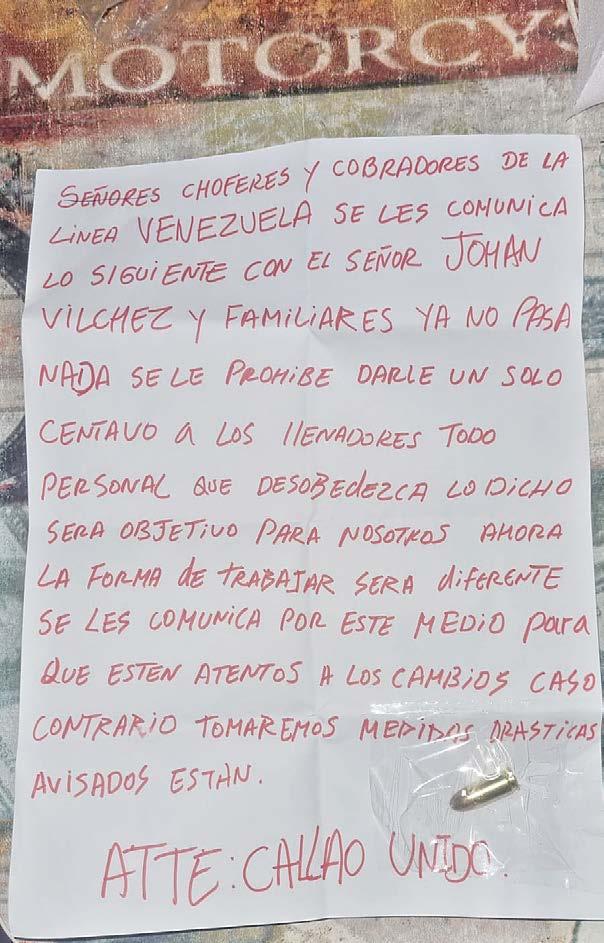 MOTORCY
SEÑORES CHOFERES Y COBRADORES DE LA
LINEA VENEZUELA SE LES COMUNICA
LO SIGUIENTE CON EL SEÑOR JOHAN
VILCHEZ Y FAMILIARES YA NO PASA
NADA SE LE PROHIBE DARLE UN SOLO
CENTAVO a LOS llENADORES TODO
PERSONAL QUE DESOBEDEZCA LO DICHO
SERA OBJETIVO PARA NOSOTROS AHORA
LA FORMA de TRABAJAR SERA diFERENTE
SE LES COMUNICA POR ESTE MEDIO para
QUE ESTEN ATENTOS A LOS CAMBIOS CASO
CONTRARIO TOMAREMOS MEDIDAS DRASTICAS
AVISADOS ESTAN.
ATTE: CALLAO UNIDO.